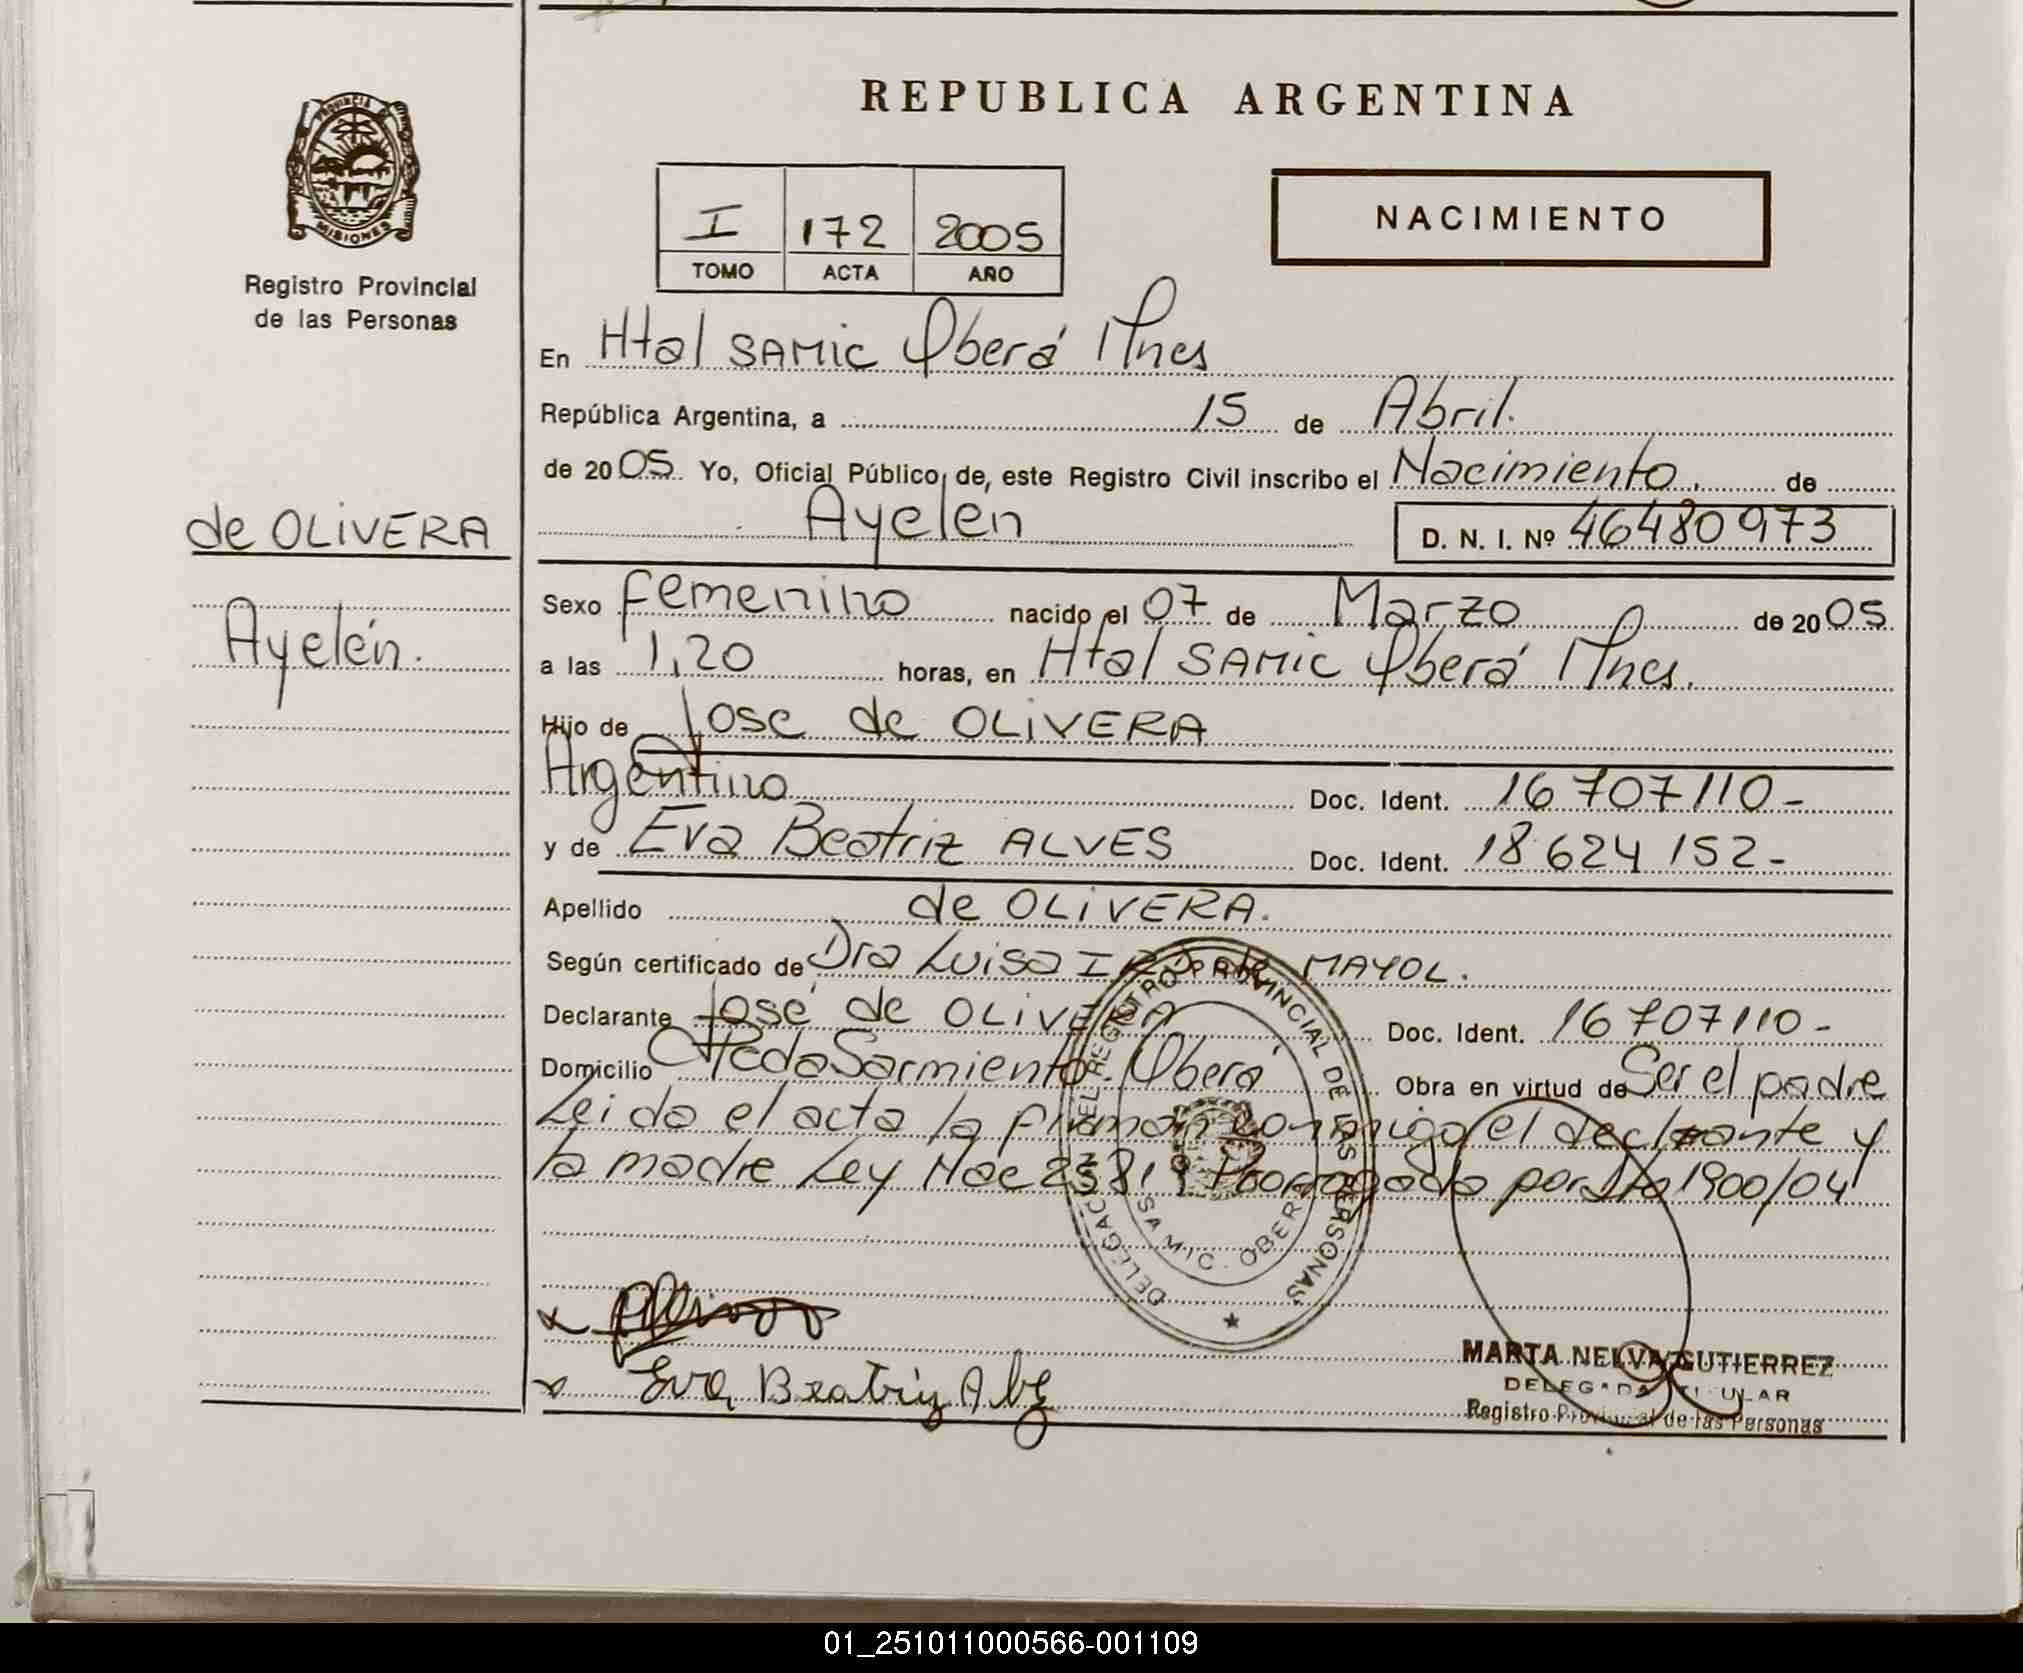 REPUBLICA ARGENTINA
PROVINCIA DE
MISIONES
Registro Provincial
de las Personas
I 172 2005
TOMO ACTA AÑO
NACIMIENTO
En Htal SAMIC Oberá Mnes
República Argentina, a 15 de Abril.
de 2005. Yo, Oficial Público, de, este Registro Civil inscribo el Nacimiento. de
de OLIVERA
Ayelén.
Ayelen D. N. I. Nº 46480973
Sexo femenino nacido el 07 de Marzo de 2005
a las 1,20 horas, en Htal SAMIC Oberá Mnes.
Hijo de Jose de OLIVERA
Argentino Doc. Ident. 16707110-
y de Eva Beatriz ALVES Doc. Ident. 18624152-
Apellido de OLIVERA.
Según certificado de Dra Luisa MAYOL.
Declarante José de OLIVERA Doc. Ident. 16707110-
Domicilio Pcda Sarmiento. Oberá Obra en virtud de Ser el padre
Leido el acta la firman conmigo el declarante y
la madre Ley Nac 25819 Prorrogada por Dto 1900/04
DELEGACION DEL REGISTRO PROVINCIAL DE LAS PERSONAS
SAMIC. OBERA
Eva Beatriz Alvez
MARTA NELVA GUTIERREZ
DELEGADA TITULAR
Registro Provincial de las Personas
01_251011000566-001109